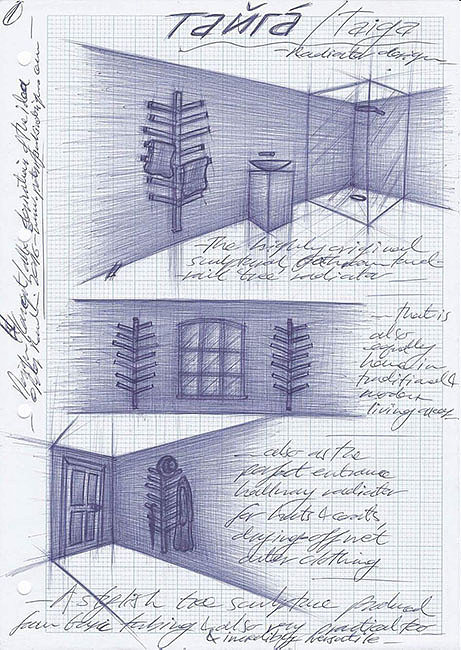 тайга / Taiga
- Radiator design -
- The highly original
sculptural bathroom towel
rail tree radiator -
- that is
also
equally
home in
traditional &
modern
living areas -
- also as the
perfect entrance
hallway radiator
for hats & coats,
drying off wet
outer clothing
- A stylish tree sculpture produced
from tubing & also very practical too
& incredibly versatile -